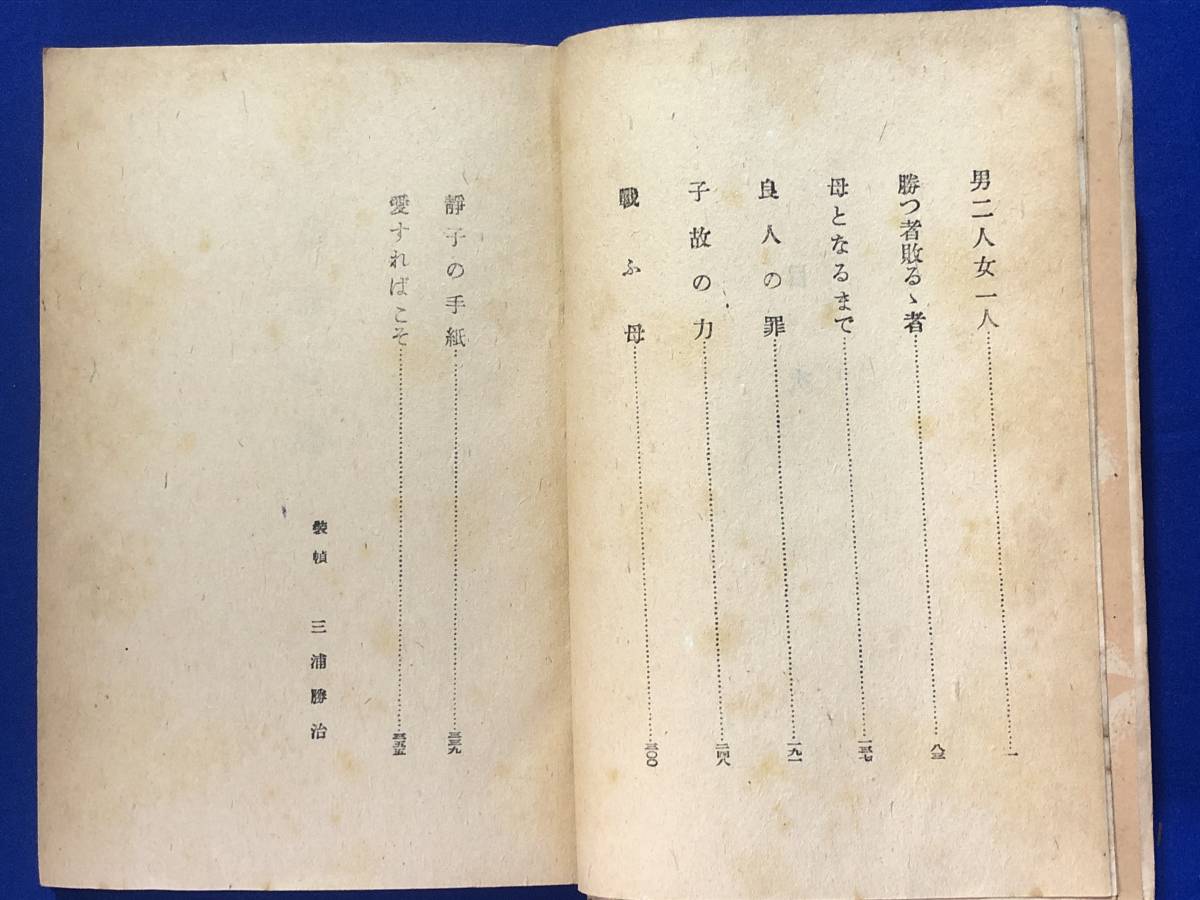 男二人女一人…………一
勝つ者敗るゝ者…………八三
母となるまで…………一三七
良人の罪…………一九一
子故の力…………二四八
戰ふ母…………三〇〇
靜子の手紙…………三三九
愛すればこそ…………三五五
裝幀 三浦勝治